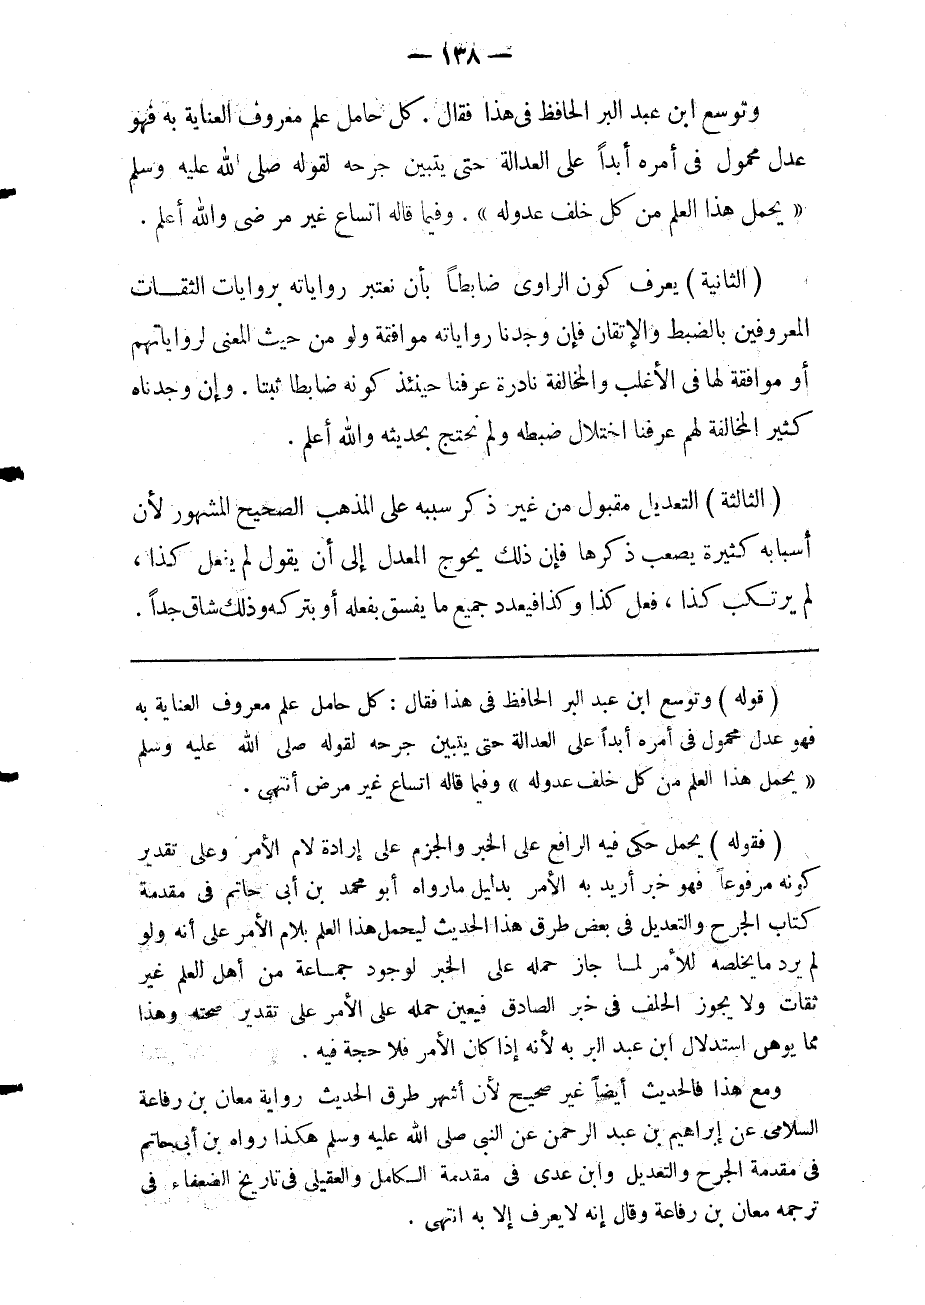 — ١٣٨ —
وتوسع ابن عبد البر الحافظ فى هذا فقال . كل حامل علم معروف العناية به فهو
عدل محمول فى أمره أبداً على العدالة حتى يتبين جرحه لقوله صلى الله عليه وسلم
« يحمل هذا العلم من كل خلف عدوله » . وفيما قاله اتساع غير مرضى والله أعلم .
( الثانية ) يعرف كون الراوى ضابطاً بأن نعتبر رواياته بروايات الثقــات
المعروفين بالضبط والإتقان فإن وجدنا رواياته موافقة ولو من حيث المعنى لرواياتهم
أو موافقة لها فى الأغلب والمخالفة نادرة عرفنا حينئذ كونه ضابطا ثبتا . وإن وجدناه
كثير المخالفة لهم عرفنا اختلال ضبطه ولم نحتج بحديثه والله أعلم .
( الثالثة ) التعديل مقبول من غير ذكر سببه على المذهب الصحيح المشهور لأن
أسبابه كثيرة يصعب ذكرها فإن ذلك يحوج المعدل إلى أن يقول لم يفعل كذا ،
لم يرتكب كذا ، فعل كذا وكذا فيعدد جميع ما يفسق بفعله أو بتركه وذلك شاق جداً .
( قوله ) وتوسع ابن عبد البر الحافظ فى هذا فقال : كل حامل علم معروف العناية به
فهو عدل محمول فى أمره أبداً على العدالة حتى يتبين جرحه لقوله صلى الله عليه وسلم
« يحمل هذا العلم من كل خلف عدوله » وفيما قاله اتساع غير مرض أنتهى .
( فقوله ) يحمل حكى فيه الرافع على الخبر والجزم على إرادة لام الأمر وعلى تقدير
كونه مرفوعاً فهو خبر أريد به الأمر بدليل مارواه أبو محمد بن أبى حاتم فى مقدمة
كتاب الجرح والتعديل فى بعض طرق هذا الحديث ليحمل هذا العلم بلام الأمر على أنه ولو
لم يرد مايخلصه للأمر لمـا جاز حمله على الخبر لوجود جمـاعة من أهل العلم غير
ثقات ولا يجوز الخلف فى خبر الصادق فيعين حمله على الأمر على تقدير صحته وهذا
مما يوهى استدلال ابن عبد البر به لأنه إذا كان الأمر فلا حجة فيه .
ومع هذا فالحديث أيضاً غير صحيح لأن أشهر طرق الحديث رواية معان بن رفاعة
السلامى عن إبراهيم بن عبد الرحمن عن النبى صلى الله عليه وسلم هكذا رواه بن أبى حاتم
فى مقدمة الجرح والتعديل وابن عدى فى مقدمة الـكامل والعقيلى فى تاريخ الضعفاء فى
ترجمه معان بن رفاعة وقال إنه لا يعرف إلا به انتهى .